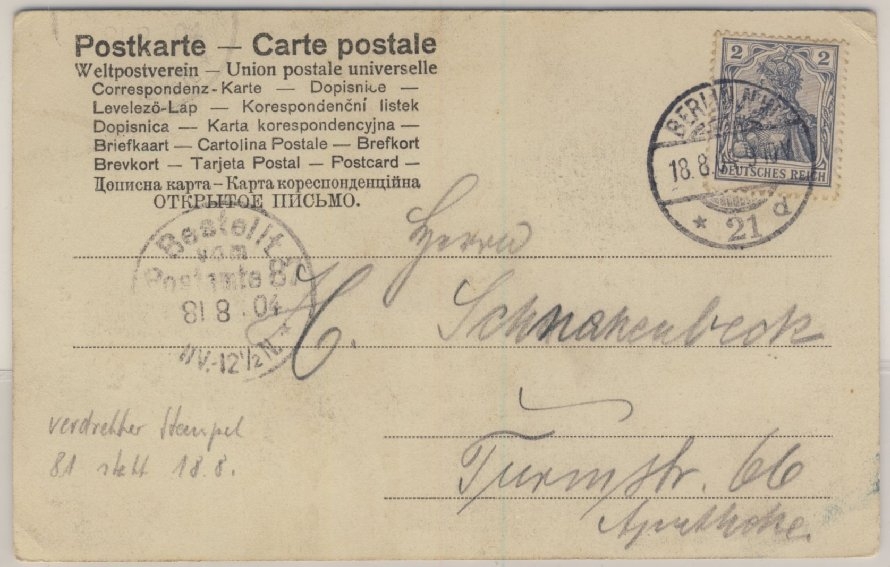 Postkarte — Carte postale
Weltpostverein — Union postale universelle
Correspondenz-Karte — Dopisnice —
Levelező-Láp — Korespondenční listek
Dopisnica — Karta korespondencyjna —
Briefkaart — Cartolina Postale — Brefkort
Brevkort — Tarjeta Postal — Postcard —
Дописна карта — Карта кореспонденційна
ОТКРЫТОЕ ПИСЬМО.
2 2
DEUTSCHES REICH
BERLIN
18.8.
* 21 d
Bestellt
vom
Postamte 87
81 8 04
11V.-12½N. *
Herrn
H. Schnakenbeck
Turmstr. 66
Apotheke.
verdrehter Stempel
81 statt 18.8.